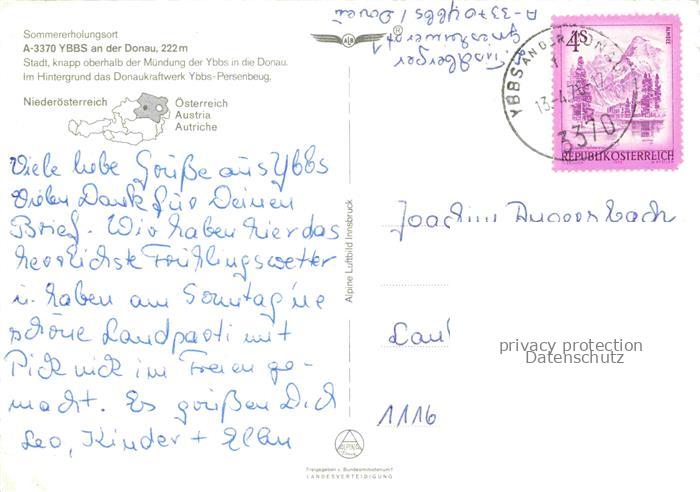 Sommererholungsort
A-3370 YBBS an der Donau, 222 m
Stadt, knapp oberhalb der Mündung der Ybbs in die Donau.
Im Hintergrund das Donaukraftwerk Ybbs-Persenbeug.
Niederösterreich
Österreich
Austria
Autriche
Viele liebe Grüße aus Ybbs
Vielen Dank für Deinen
Brief. Wir haben hier das
herrlichste Frühlingswetter
u. haben am Sonntag 'ne
schöne Landparti mit
Picknick im Freien ge-
macht. Es grüßen Dich
Leo, Kinder +
A-3370 Ybbs / Donau
ALN
®
4S
ALMSEE
REPUBLIK ÖSTERREICH
YBBS AN DER DONAU
13.-4.78-17
3370
Alpine Luftbild Innsbruck
Joachim
1116
privacy protection
Datenschutz
ALPINA
Freigegeben v. Bundesministerium f.
LANDESVERTEIDIGUNG